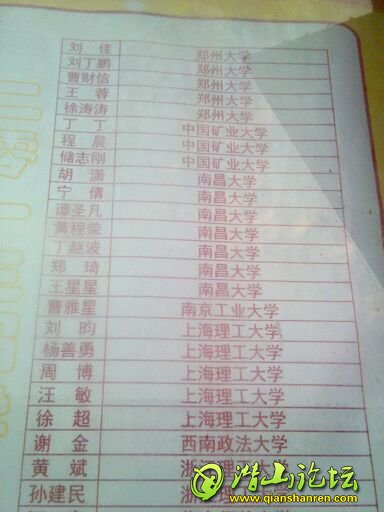 刘 佳 郑州大学
刘丁鹏 郑州大学
曹财信 郑州大学
王 蓉 郑州大学
徐涛涛 郑州大学
丁 丁 中国矿业大学
程 晨 中国矿业大学
储志刚 中国矿业大学
胡 潇 南昌大学
宁 倩 南昌大学
谭圣凡 南昌大学
黄程荣 南昌大学
丁赵波 南昌大学
郑 琦 南昌大学
王星星 南昌大学
曹雅星 南京工业大学
刘 昀 上海理工大学
杨善勇 上海理工大学
周 博 上海理工大学
汪 敏 上海理工大学
徐 超 上海理工大学
谢 金 西南政法大学
黄 斌 浙
孙建民 浙
潜山论坛
www.qianshanren.com